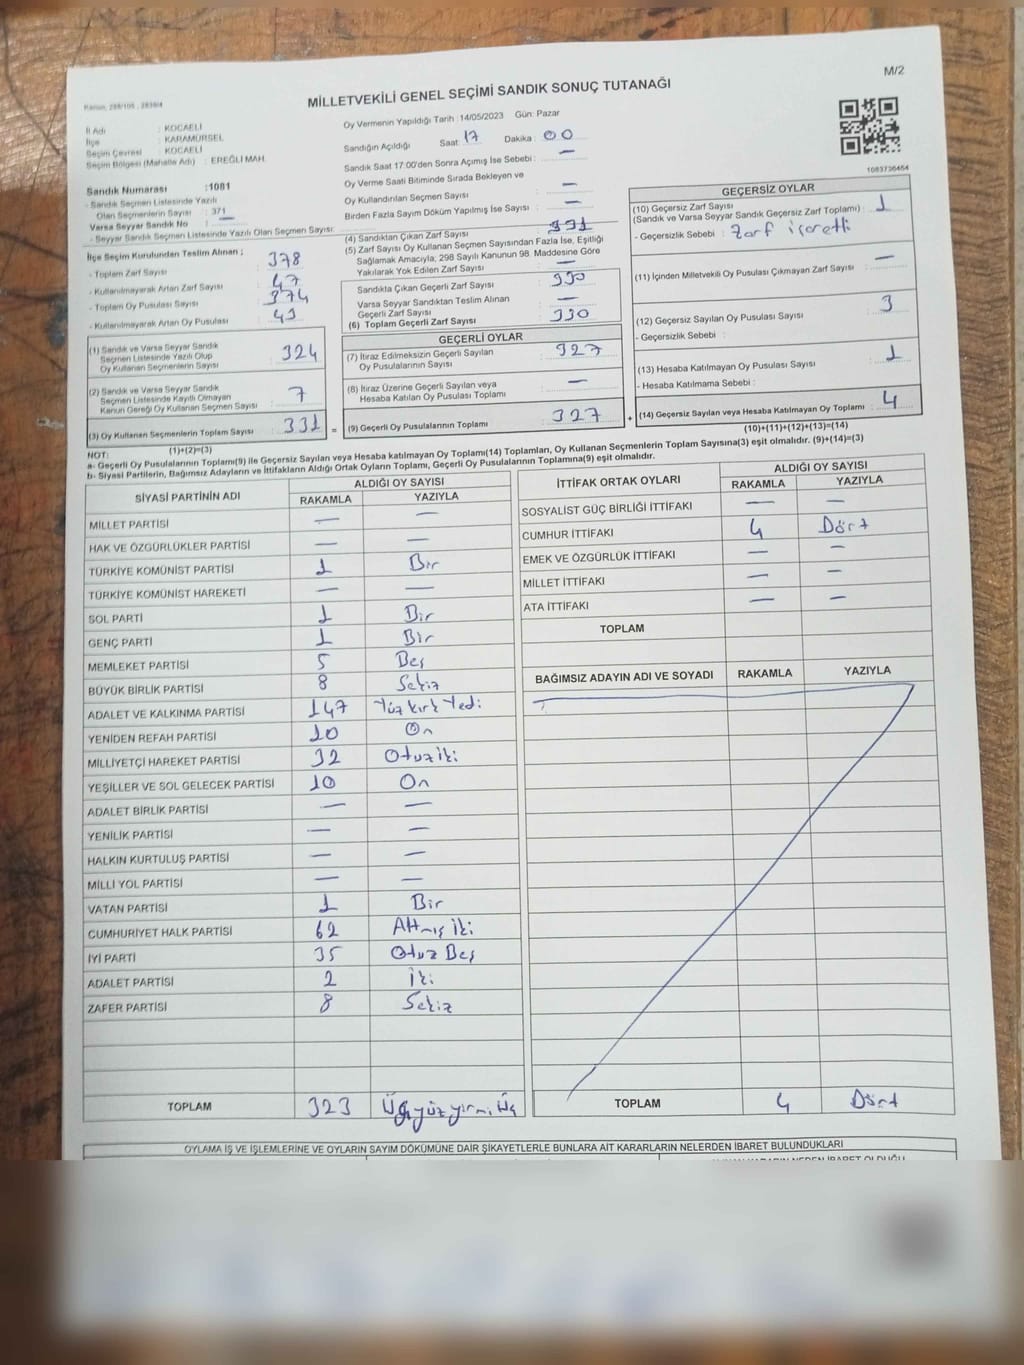 M/2
Kanun, 298/105 , 2839/4
MİLLETVEKİLİ GENEL SEÇİMİ SANDIK SONUÇ TUTANAĞI
İl Adı : KOCAELİ
İlçe : KARAMÜRSEL
Seçim Çevresi : KOCAELİ
Seçim Bölgesi (Mahalle Adı) : EREĞLİ MAH.
Sandık Numarası :1081
- Sandık Seçmen Listesinde Yazılı
Olan Seçmenlerin Sayısı : 371
Varsa Seyyar Sandık No : —
- Seyyar Sandık Seçmen Listesinde Yazılı Olan Seçmen Sayısı:
İlçe Seçim Kurulundan Teslim Alınan ;
- Toplam Zarf Sayısı : 378
- Kullanılmayarak Artan Zarf Sayısı : 47
- Toplam Oy Pusulası Sayısı : 374
- Kullanılmayarak Artan Oy Pusulası : 43
(1) Sandık ve Varsa Seyyar Sandık
Seçmen Listesinde Yazılı Olup
Oy Kullanan Seçmenlerin Sayısı : 324
(2) Sandık ve Varsa Seyyar Sandık
Seçmen Listesinde Kayıtlı Olmayan
Kanun Gereği Oy Kullanan Seçmen Sayısı : 7
(3) Oy Kullanan Seçmenlerin Toplam Sayısı : 331
(1)+(2)=(3)
Oy Vermenin Yapıldığı Tarih :14/05/2023 Gün: Pazar
Sandığın Açıldığı Saat: 17 Dakika : 00
Sandık Saat 17:00'den Sonra Açımış İse Sebebi : —
Oy Verme Saati Bitiminde Sırada Bekleyen ve
Oy Kullandırılan Seçmen Sayısı : —
Birden Fazla Sayım Döküm Yapılmış İse Sayısı : —
(4) Sandıktan Çıkan Zarf Sayısı : 331
(5) Zarf Sayısı Oy Kullanan Seçmen Sayısından Fazla İse, Eşitliği
Sağlamak Amacıyla, 298 Sayılı Kanunun 98. Maddesine Göre
Yakılarak Yok Edilen Zarf Sayısı : —
Sandıkta Çıkan Geçerli Zarf Sayısı : 330
Varsa Seyyar Sandıktan Teslim Alınan
Geçerli Zarf Sayısı : —
(6) Toplam Geçerli Zarf Sayısı : 330
GEÇERLİ OYLAR
(7) İtiraz Edilmeksizin Geçerli Sayılan
Oy Pusulasının Sayısı : 327
(8) İtiraz Üzerine Geçerli Sayılan veya
Hesaba Katılan Oy Pusulası Toplamı : —
= (9) Geçerli Oy Pusulalarının Toplamı : 327 +
1083736454
GEÇERSİZ OYLAR
(10) Geçersiz Zarf Sayısı
(Sandık ve Varsa Seyyar Sandık Geçersiz Zarf Toplamı) : 1
- Geçersizlik Sebebi : Zarf işaretli
(11) İçinden Milletvekili Oy Pusulası Çıkmayan Zarf Sayısı : —
(12) Geçersiz Sayılan Oy Pusulası Sayısı : 3
- Geçersizlik Sebebi :
(13) Hesaba Katılmayan Oy Pusulası Sayısı : 1
- Hesaba Katılmama Sebebi :
(14) Geçersiz Sayılan veya Hesaba Katılmayan Oy Toplamı : 4
(10)+(11)+(12)+(13)=(14)
NOT:
a- Geçerli Oy Pusulalarının Toplamı(9) ile Geçersiz Sayılan veya Hesaba katılmayan Oy Toplamı(14) Toplamları, Oy Kullanan Seçmenlerin Toplam Sayısına(3) eşit olmalıdır. (9)+(14)=(3)
b- Siyasi Partilerin, Bağımsız Adayların ve İttifakların Aldığı Ortak Oyların Toplamı, Geçerli Oy Pusulalarının Toplamına(9) eşit olmalıdır.
SİYASİ PARTİNİN ADI ALDIĞI OY SAYISI
RAKAMLA YAZIYLA
MİLLET PARTİSİ — —
HAK VE ÖZGÜRLÜKLER PARTİSİ — —
TÜRKİYE KOMÜNİST PARTİSİ 1 Bir
TÜRKİYE KOMÜNİST HAREKETİ — —
SOL PARTİ 1 Bir
GENÇ PARTİ 1 Bir
MEMLEKET PARTİSİ 5 Beş
BÜYÜK BİRLİK PARTİSİ 8 Sekiz
ADALET VE KALKINMA PARTİSİ 147 Yüz kırk Yedi
YENİDEN REFAH PARTİSİ 10 On
MİLLİYETÇİ HAREKET PARTİSİ 32 Otuz iki
YEŞİLLER VE SOL GELECEK PARTİSİ 10 On
ADALET BİRLİK PARTİSİ — —
YENİLİK PARTİSİ — —
HALKIN KURTULUŞ PARTİSİ — —
MİLLİ YOL PARTİSİ — —
VATAN PARTİSİ 1 Bir
CUMHURİYET HALK PARTİSİ 62 Altmış iki
İYİ PARTİ 35 Otuz Beş
ADALET PARTİSİ 2 İki
ZAFER PARTİSİ 8 Sekiz
TOPLAM 323 Üçyüz yirmi Üç
İTTİFAK ORTAK OYLARI ALDIĞI OY SAYISI
RAKAMLA YAZIYLA
SOSYALİST GÜÇ BİRLİĞİ İTTİFAKI — —
CUMHUR İTTİFAKI 4 Dört
EMEK VE ÖZGÜRLÜK İTTİFAKI — —
MİLLET İTTİFAKI — —
ATA İTTİFAKI — —
TOPLAM
BAĞIMSIZ ADAYIN ADI VE SOYADI RAKAMLA YAZIYLA
TOPLAM 4 Dört
OYLAMA İŞ VE İŞLEMLERİNE VE OYLARIN SAYIM DÖKÜMÜNE DAİR ŞİKAYETLERLE BUNLARA AİT KARARLARIN NELERDEN İBARET BULUNDUKLARI